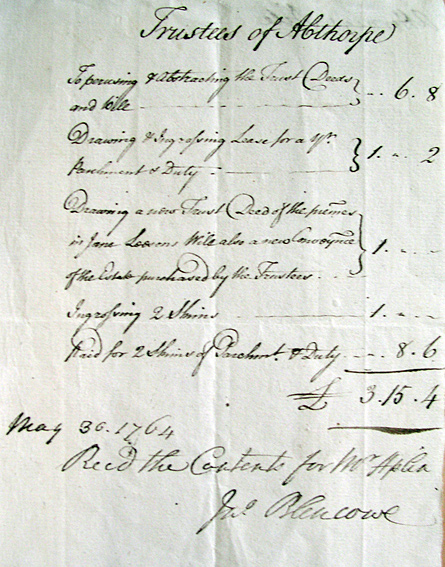 Trustees of Abthorpe
To perusing & abstracting the Trust Deeds
and Will - - - - - . 6. 8
Drawing & Ingrossing Lease for a yr.
Parchment & Duty - - - 1. - . 2
Drawing a new Trust Deed of the premes
in Jane Leesons Will also a new Conveyance
of the Estate purchased by the Trustees - - 1. - . -
Ingrossing 2 Skins - - - 1. - . -
Paid for 2 Skins of Parchmt. & Duty - - . 8. 6
£ 3. 15. 4
May 30. 1764
Recd the Contents for Mr Aplin
Jno Blencowe